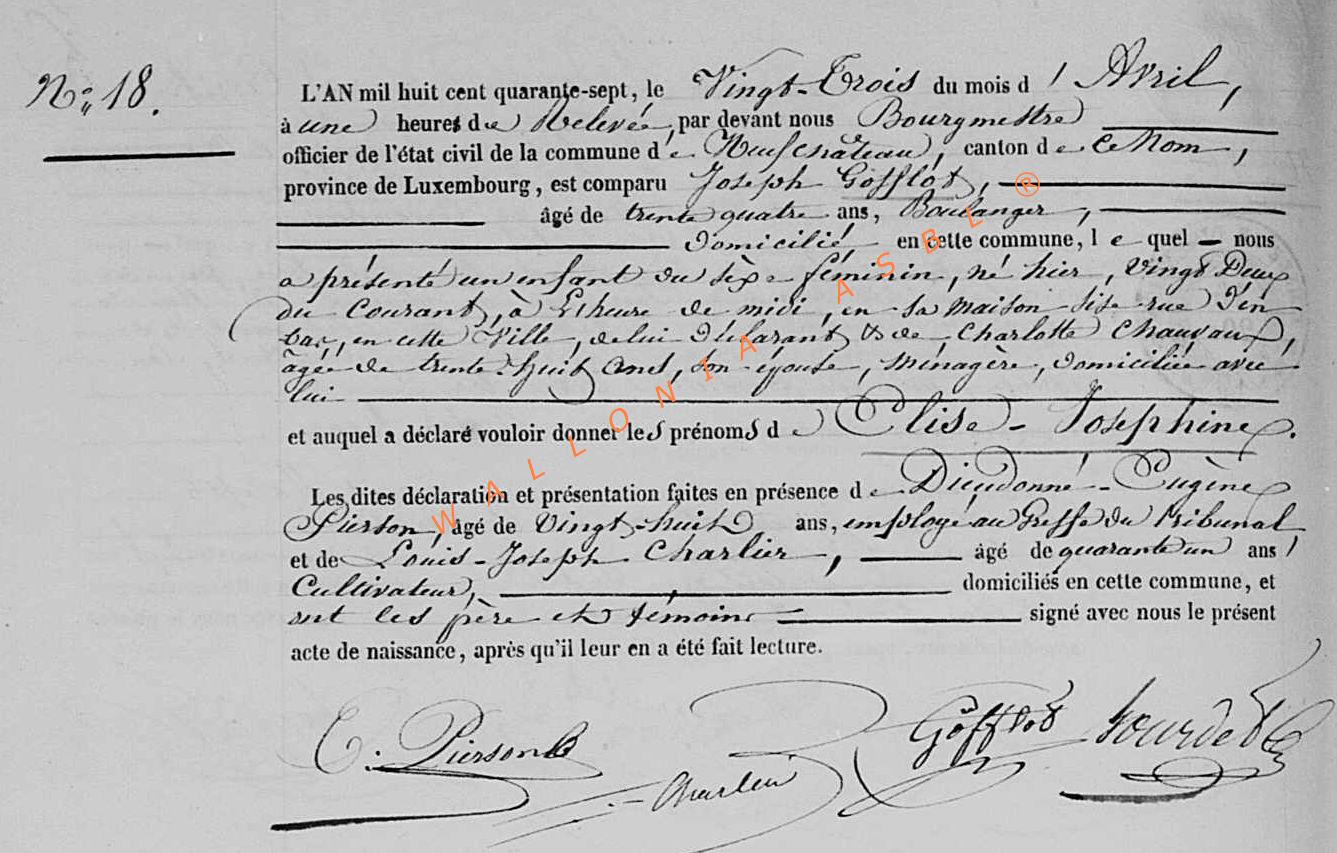 N.° 18.
L'AN mil huit cent quarante-sept, le Vingt-Trois du mois d' Avril,
à une heures de Relevée, par devant nous Bourgmestre
officier de l'état civil de la commune de Neufchâteau, canton de ce Nom,
province de Luxembourg, est comparu Joseph Gofflot,
âgé de trente quatre ans, Boulanger,
Domicilié, en cette commune, le quel nous
a présenté un enfant du sèxe féminin, né hier, Vingt Deux
du Courant, à l'heure de midi, en sa maison sise rue d'en
bas, en cette Ville, de lui Déclarant & de Charlotte Chauvaux,
âgée de trente-huit ans, son épouse, ménagère, domiciliée avec
lui
et auquel a déclaré vouloir donner les prénoms de Elise-Joséphine.
Les dites déclaration et présentation faites en présence de Dieudonné-Eugène
Pierson, âgé de Vingt-huit ans, employé au Greffe du tribunal
et de Louis-Joseph Charlier, âgé de quarante un ans
Cultivateur, domiciliés en cette commune, et
ont les père et témoins signé avec nous le présent
acte de naissance, après qu'il leur en a été fait lecture.
E. Pierson Charlier Gofflot Sourdet
WALLONIA ASBL ®